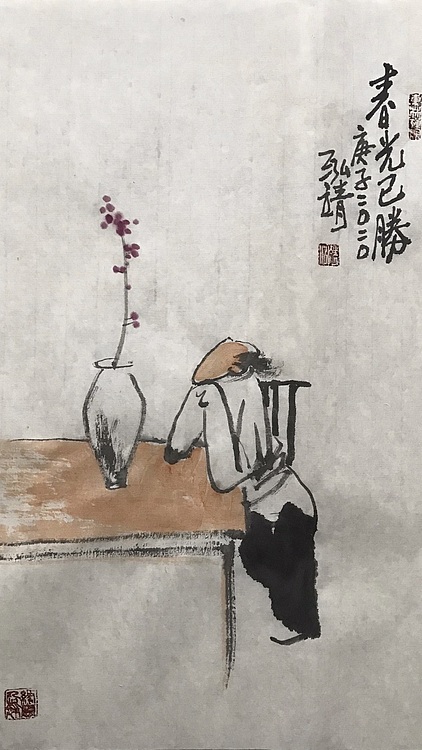 春光已勝
庚子二〇二〇